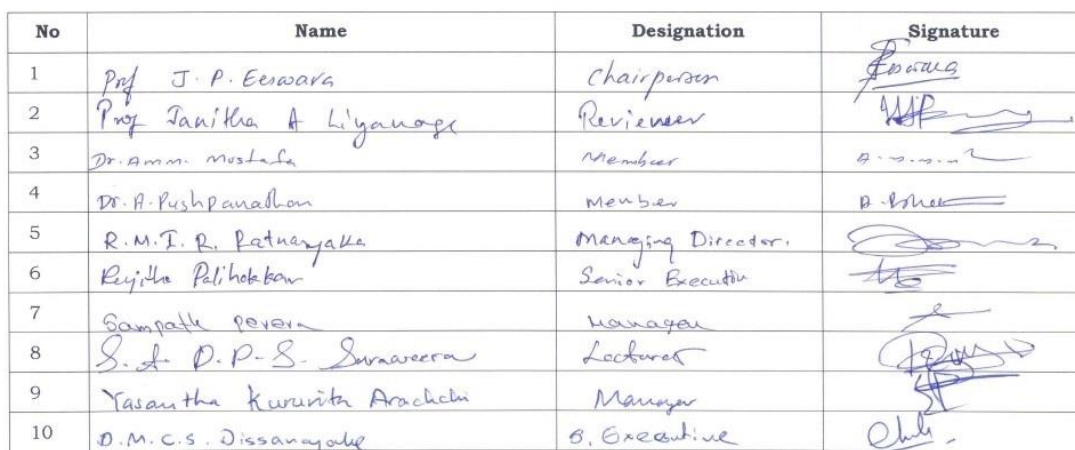 No Name Designation Signature
1 Prof J. P. Eeswara Chairperson
2 Prof Janitha A Liyanage Reviewer
3 Dr. Amm. Mustafa Member
4 Dr. A. Pushpanathan Member
5 R. M. I. R. Ratnayaka Managing Director.
6 Rujitha Palihakkara Senior Executive
7 Sampath perera Manager
8 S. A. D. P. S. Lecturer
9 Yasantha Kuruvita Arachchi Manager
10 D. M. C. S. Dissanayake S. Executive